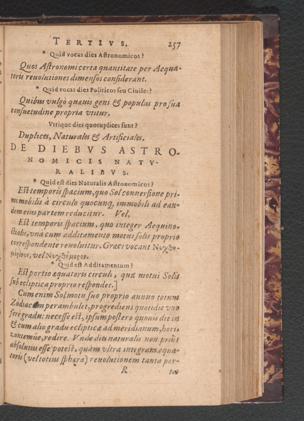 TERTIVS. 257
* Quid vocas dies Astronomicos?
Quos Astronomi certa quantitate per Aequa-
toris reuolutiones dimensos considerant.
* Quid vocas dies Politicos seu Ciuiles?
Quibus vulgò quauis gens & populus pro sua
consuetudine propria vtitur.
Vtrique dies quotuplices sunt?
Duplices, Naturales & Artificiales.
DE DIEBVS ASTRO-
NOMICIS NATV-
RALIBVS.
* Quid est dies Naturalis Astronomicus?
Est temporis spacium, quo Sol conuersione pri-
mi mobilis à circulo quocunq, immobili ad eun-
dem eius partem reducitur. Vel,
Est temporis spacium, quo integer Aequino-
ctialis, vnà cum additamento motui solis proprio
correspondente reuoluitur. Graeci vocant
vel
* Quid est Additamentum?
Est portio aequatoris circuli, quae motui Solis
sub ecliptica proprio respondet.]
Cum enim Sol motu suo proprio annuo totum
Zodiacum perambulet, progrediens quotidie vno
ferè gradu: necesse est, ipsum postero quouis die in
& cum alio gradu eclipticae ad meridianum, hori-
zontemue, redire. Vnde dies naturalis non prius
absolutus esse potest, quàm vltra integram aequa-
toris (vel totius sphaerae) reuolutionem tanta por-
R